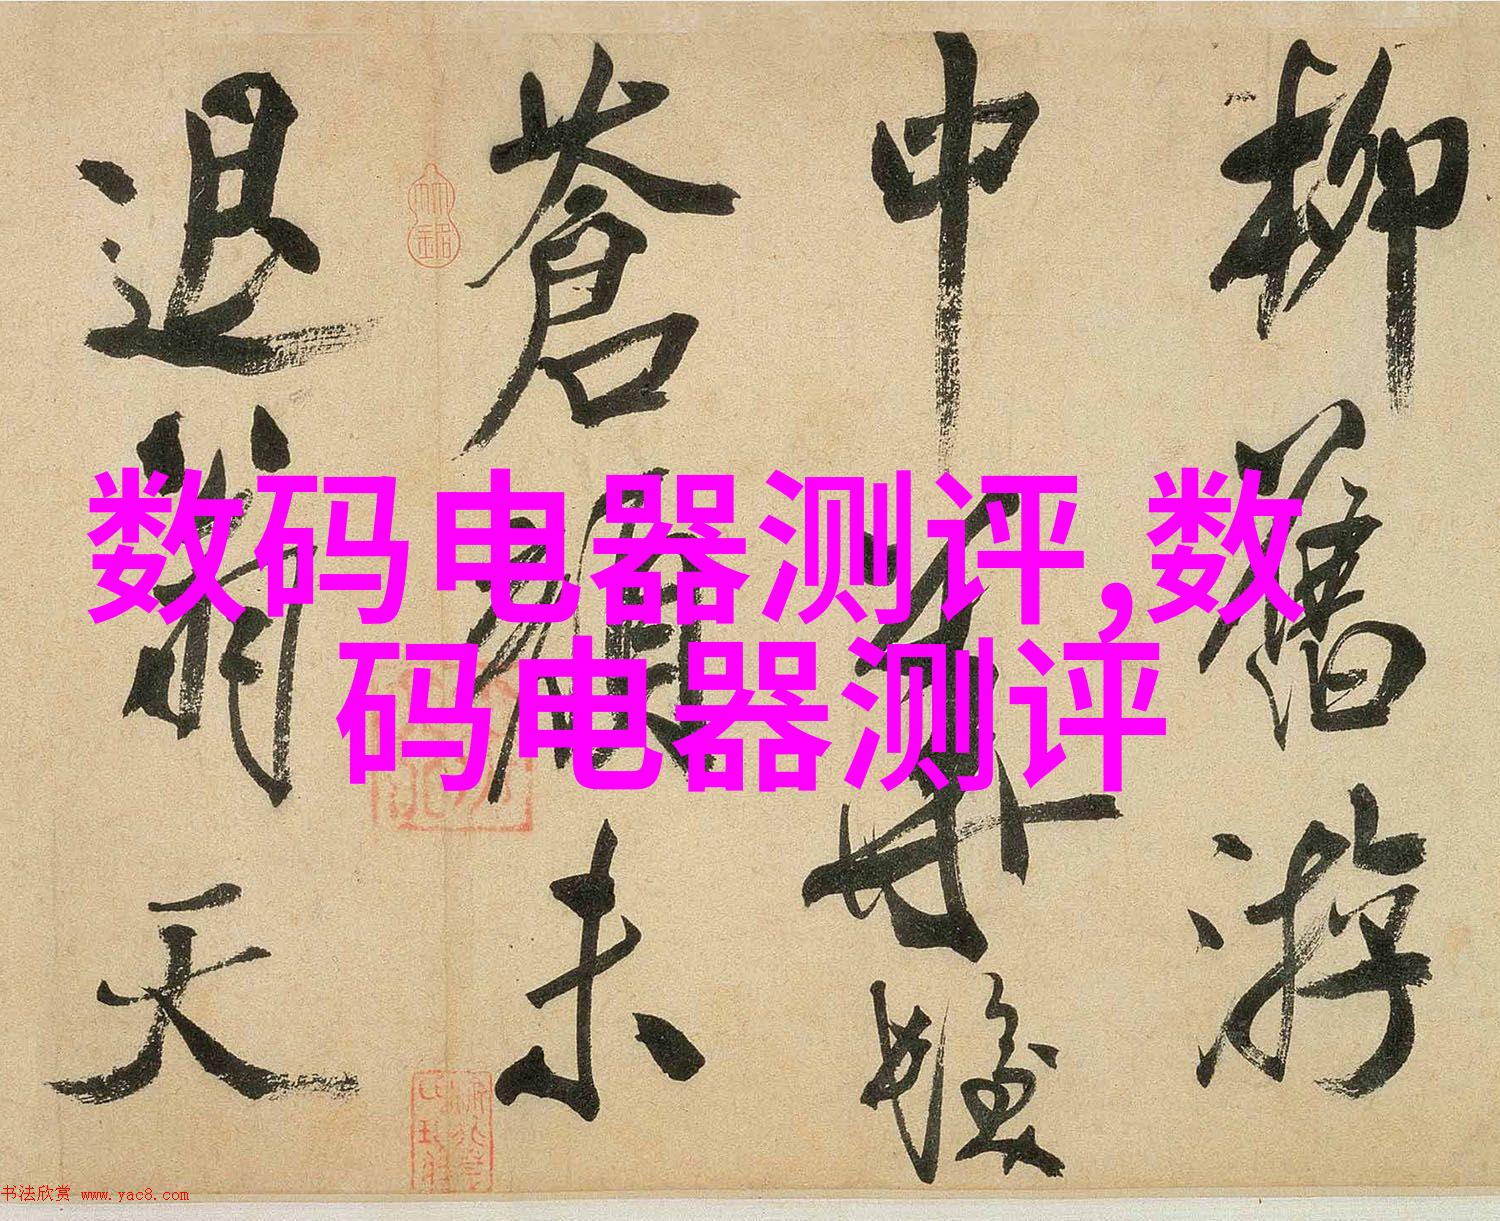 柳舊游
中華髮
蒼顏未
退翁天
数码电器测评,数
码电器测评
书法欣赏 www.yac8.com